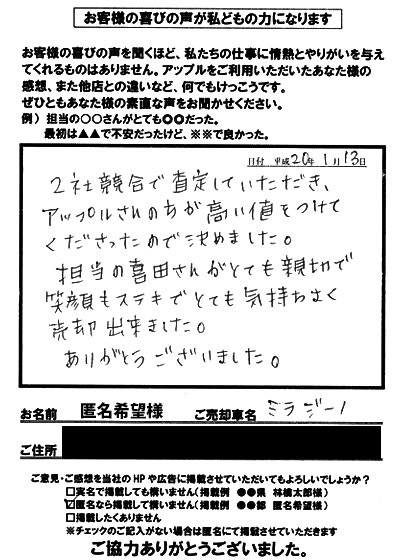 お客様の喜びの声が私どもの力になります
お客様の喜びの声を聞くほど、私たちの仕事に情熱とやりがいを与え
てくれるものはありません。アップルをご利用いただいたあなた様の
感想、また他店との違いなど、何でもけっこうです。
ぜひともあなた様の素直な声をお聞かせください。
例）担当の〇〇さんがとても〇〇だった。
最初は▲▲で不安だったけど、※※で良かった。
日付 平成20年1月13日
2社競合で査定していただき、
アップルさんの方が高い値をつけて
くださったので決めました。
担当の喜田さんがとても親切で
笑顔もステキでとても気持ちよく
売却出来ました。
ありがとうございました。
お名前 匿名希望様 ご売却車名 ミラジーノ
ご住所
ご意見・ご感想を当社のHPや広告に掲載させていただいてもよろしいでしょうか？
□実名で掲載しても構いません（掲載例 ●●県 林檎太郎様）
☑匿名なら掲載して構いません（掲載例 ●●部 匿名希望様）
□掲載したくありません
※チェックのご記入がない場合は匿名にて掲載させていただきます
ご協力ありがとうございました。